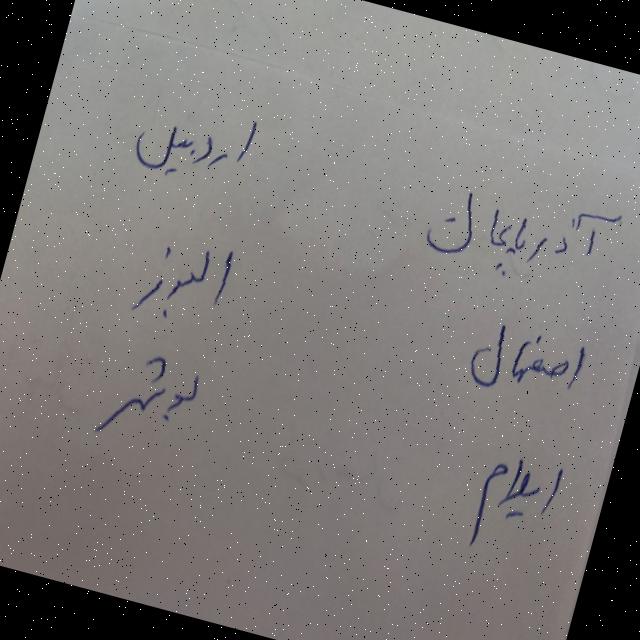 آذربایجان
اصفهان
ایلام
اردبیل
البرز
بوشهر